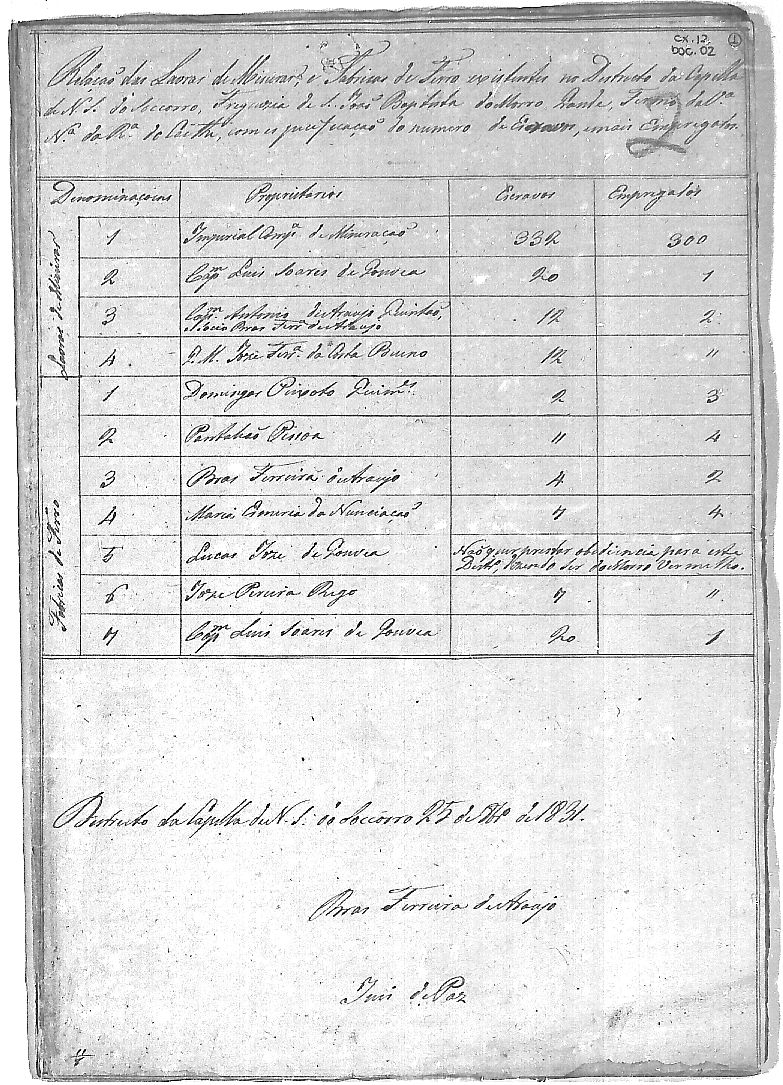 CX.12
DOC.02
1
Relação das Lavras de Minerar, e Fabricas de Ferro existentes no Destricto da Capella
de N. S. do Socorro, Freguezia de S. João Baptista do Morro Grande, Termo da V.ª
N.ª da R.ª do Caethe, com espicificação do numero de Escravos, e mais Empregados.
Denominaçoens Proprietarios Escravos Empregados
Lavras de Minerar
1 Imperial Comp.ª de Mineração 332 300
2 Cap.m Luis Soares de Gouvea 20 1
3 Cap.m Antonio de Araujo Quintão,
e Socio Bras Ferr.ª de Araujo 12 2
4 P. M. Joze Ferr.ª da Costa Bueno 12 "
Fabricas de Ferro
1 Domingos Peixoto Guim.es 2 3
2 Pantaleão Pessoa " 4
3 Bras Ferreira de Araujo 4 2
4 Maria da Nunciação 7 4
5 Lucas Joze de Gouvea Não quer prestar obediencia para este
Distr.º, querendo ser do Morro Vermelho.
6 Joze Pereira Rego 7 "
7 Cap.m Luis Soares de Gouvea 20 1
Destricto da Capella de N. S. do Soccorro 25 de de 1831.
Bras Ferreira de Araujo
Juis de Paz